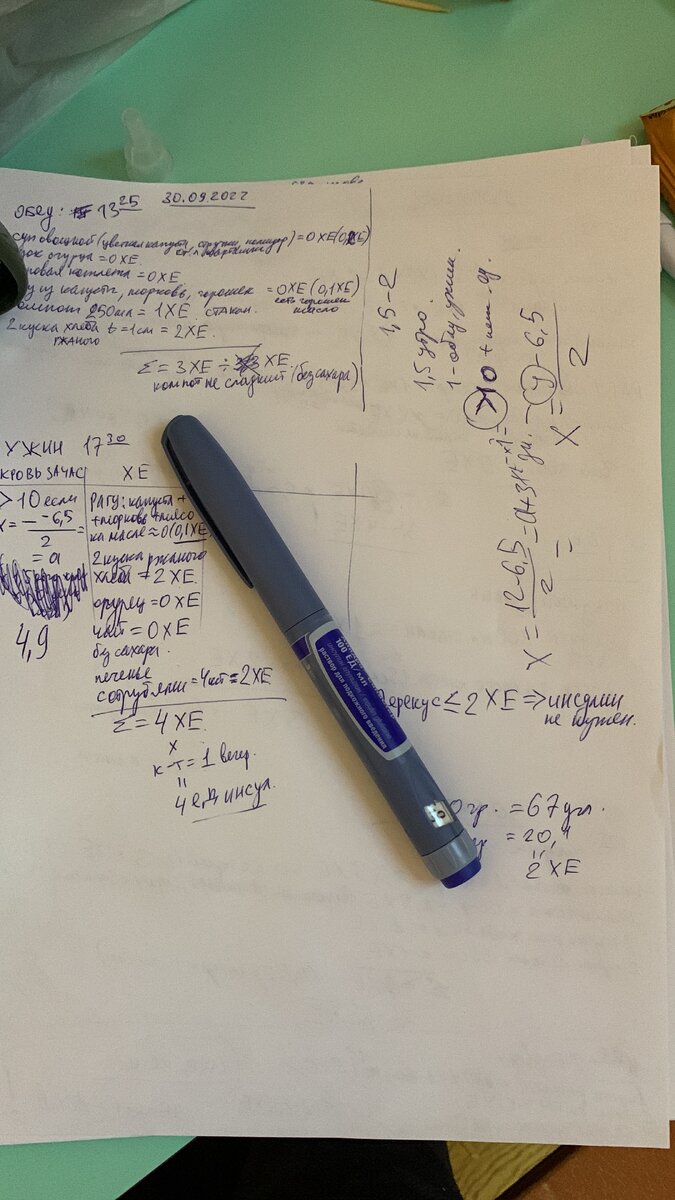 ОБЕД: 13 25 30.09.2022
суп овощной (цветная капуста, огурки, помидор) = 0 ХЕ (0, ХЕ)
огурца = 0 ХЕ.
котлета = 0 ХЕ
из капусты, морковь, горошек = 0 ХЕ (0,1 ХЕ)
есть горошек
масло
компот 250мл = 1 ХЕ. стакан.
2 куска хлеба t = 1см = 2 ХЕ.
ржаного
Σ = 3 ХЕ ÷ ХЕ.
компот не сладкий (без сахара)
УЖИН 17 30
КРОВЬ ЗА ЧАС ХЕ
> 10 если
X = — -6,5
2
= a
4,9
РАГУ: капуста +
+ морковь + мясо
на масле ≈ 0 (0,1 ХЕ)
2 куска ржаного
хлеба = 2 ХЕ.
огурец = 0 ХЕ
чай = 0 ХЕ
без сахара.
печенье
с отрубями = 4шт = 2 ХЕ
Σ = 4 ХЕ.
х
к-т = 1 вечер.
=
4 ед инсул.
1,5 - 2
1,5 утро.
1 - обед, ужин.
>10 +
X = 12-6,5
2
= a +
X = (y) - 6,5
2
=
100 ЕД/мл
раствор для подкожного введения
перекус ≤ 2 ХЕ => инсулин
не нужен.
0 гр. = 67 угл.
= 20,1
=
2 ХЕ